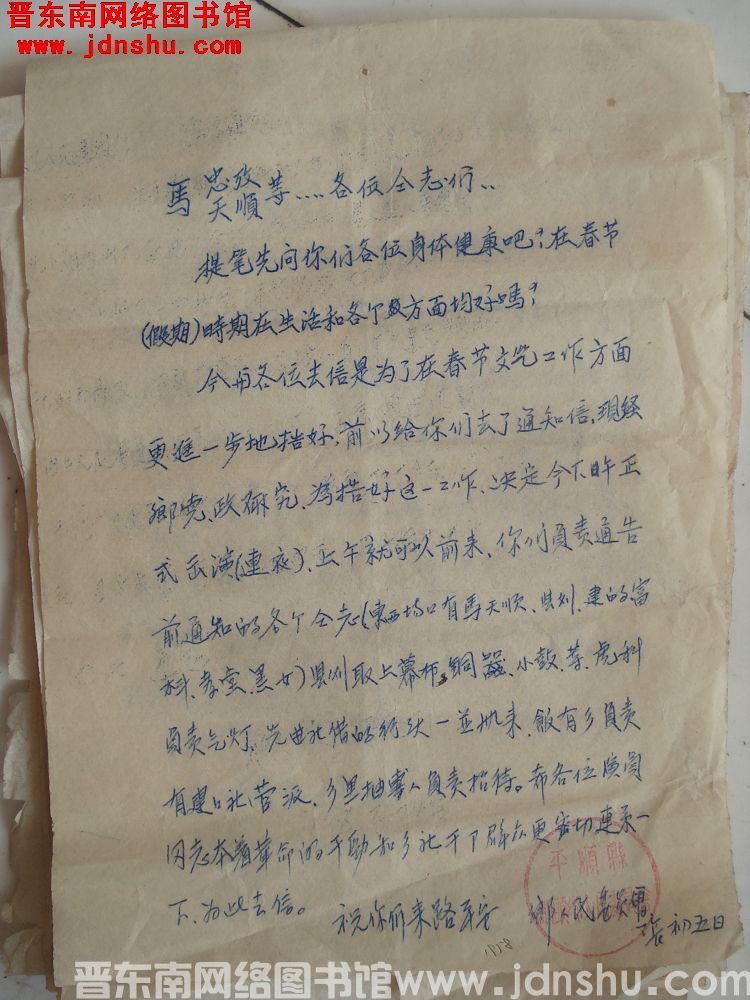 晋东南网络图书馆
www.jdnshu.com
馬忠孜天順等....各位仝志们..
提笔先问你们各位身体健康吧?在春节
(假期)時期在生活和各个方面均好嗎?
今与各位去信是为了在春节文艺工作方面
更進一步地搭好,前以给你们去了通知信,現经
鄉党、政研究,為搭好这一工作、决定今下午正
式出演(連夜)、上午就可以前来,你们負责通告
前通知的各个仝志(東西場口有馬天順、
科、孝堂、黑女)取上幕布、銅器、小鼓、等、虎科
負责气灯,先由社借的行头一並帶来,飯有乡負责
有建口社管派,乡里抽專人負责招待。希各位演員
同志本着革命的干劲和乡社干下群众更密切連系一
下、为此去信。
祝你们来路平安
鄉人民委員會
初五日
1958
平順縣
晋东南网络图书馆www.jdnshu.com